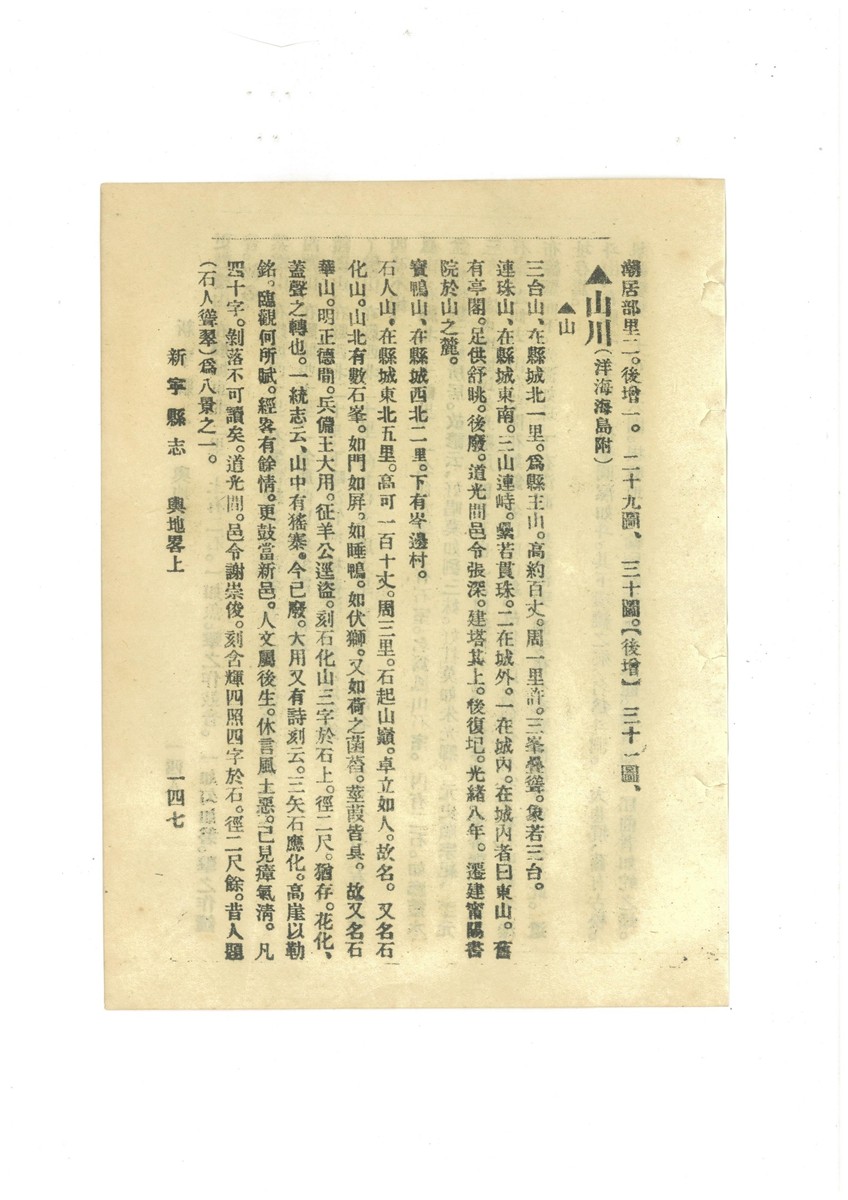 潮居部里二。後增一。　二十九圖、　三十圖。【後增】　三十一圖、
▲山川（洋海海島附）
▲山
三台山、在縣城北一里。爲縣主山。高約百丈。周一里許。三峯疊聳。象若三台。
連珠山、在縣城東南。三山連峙。纍若貫珠。二在城外。一在城內。在城內者曰東山。舊
有亭閣。足供舒眺。後廢。道光間邑令張深。建塔其上。後復圮。光緒八年。遷建甯陽書
院於山之麓。
寶鴨山、在縣城西北二里。下有岑邊村。
石人山、在縣城東北五里。高可一百十丈。周三里。石起山巔。卓立如人。故名。又名石
化山。山北有數石峯。如門如屏。如睡鴨。如伏獅。又如荷之菡萏。莖葭皆具。故又名石
華山。明正德間。兵備王大用。征羊公逕盜。刻石化山三字於石上。徑二尺。猶存。花化、
蓋聲之轉也。一統志云、山中有猺寨。今已廢。大用又有詩刻云。三矢石應化。高崖以勒
銘。臨觀何所賦。經畧有餘情。更鼓當新邑。人文屬後生。休言風土惡。已見瘴氣清。凡
四十字。剝落不可讀矣。道光間。邑令謝崇俊。刻含輝四照四字於石。徑二尺餘。昔人題
（石人聳翠）爲八景之一。
新寧縣志　輿地畧上　一四七